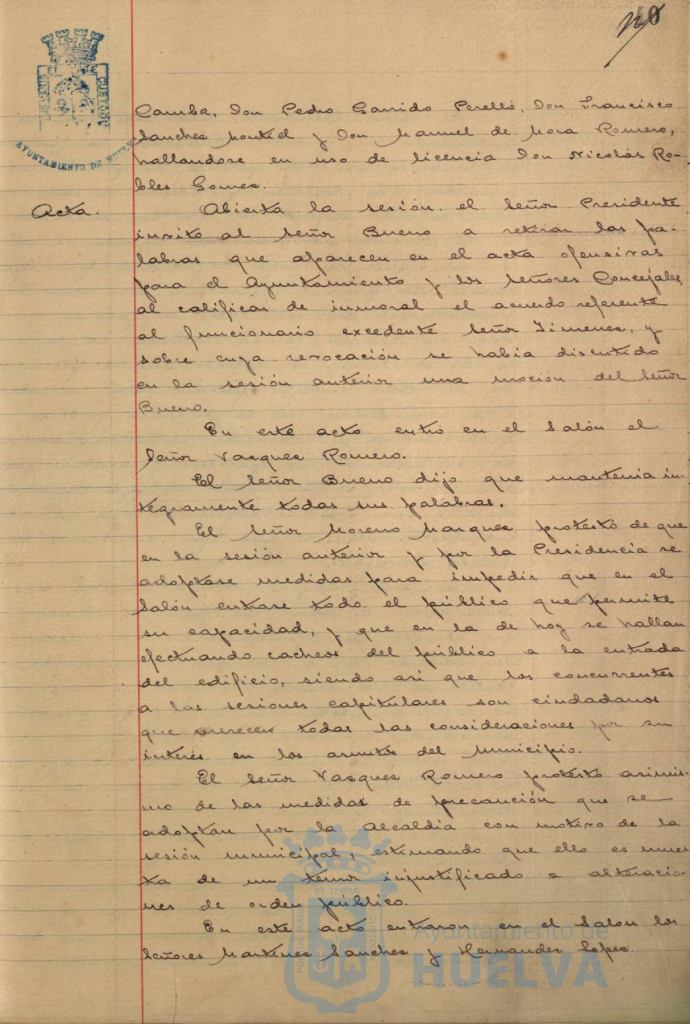 AYUNTAMIENTO DE HUELVA
Camba, Don Pedro Garrido Perelló, Don Francisco
Sanchez Montiel y Don Manuel de Mora Romero,
hallandose en uso de licencia Don Nicolás Ro-
bles Gomez.
Acta.
Abierta la sesión. el Señor Presidente
invitó al Señor Bueno a retirar las pa-
labras que aparecen en el acta ofensivas
para el Ayuntamiento y los Señores Concejales,
al calificar de inmoral el acuerdo referente
al funcionario excedente Señor Jimenez, y
sobre cuya revocación se habia discutido
en la sesión anterior una moción del Señor
Bueno.
En este acto entró en el Salón el
Señor Vazquez Romero.
El Señor Bueno dijo que mantenia in-
tegramente todas sus palabras.
El Señor Moreno Marquez protestó de que
en la sesión anterior y por la Presidencia se
adoptase medidas para impedir que en el
Salón entrase todo el público que permite
su capacidad, y que en la de hoy se hallan
efectuando cacheos del público a la entrada
del edificio, siendo asi que los concurrentes
a las sesiones capitulares son ciudadanos
que merecen todas las consideraciones por su
interés en los asuntos del Municipio.
El Señor Vazquez Romero protestó asimis-
mo de las medidas de precaución que se
adoptan por la Alcaldia con motivo de la
sesión municipal, estimando que ello es mues-
tra de un temor injustificado a alteracio-
nes de orden público.
En este acto entraron en el Salon los
Señores Martinez Sanchez y Hernandez Lopez.
Ayuntamiento de
HUELVA